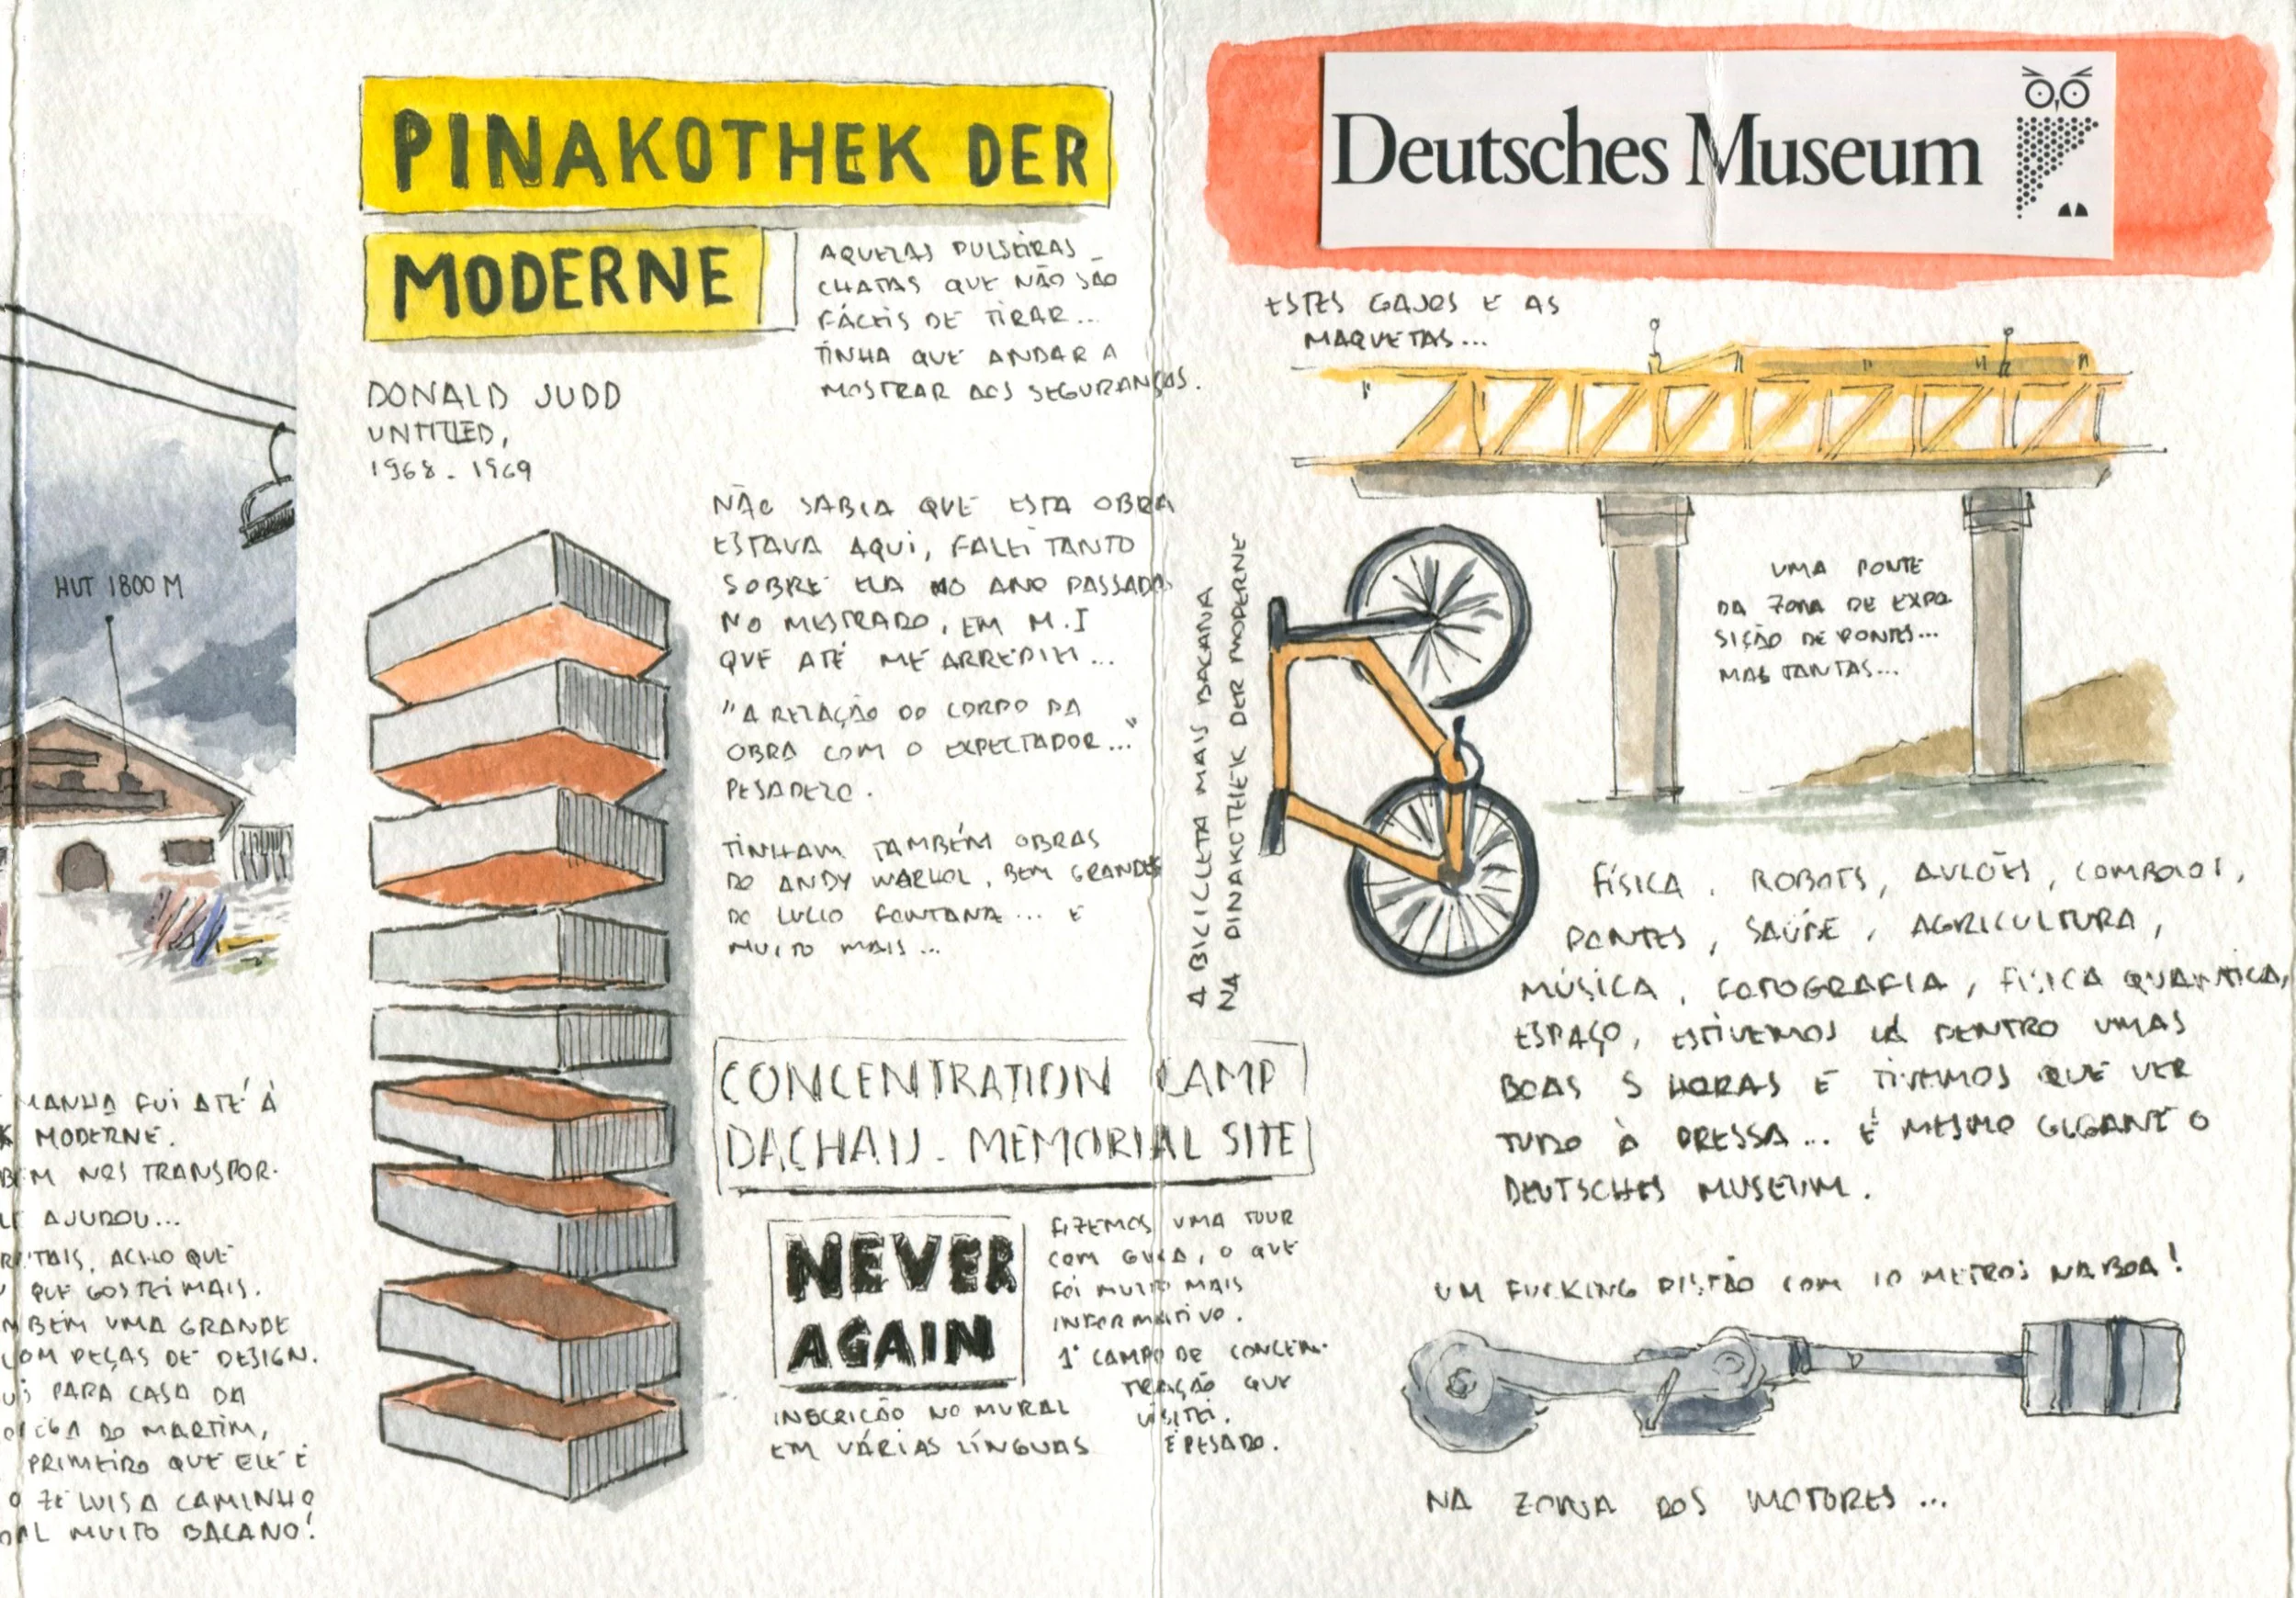 HUT 1800 M
MANHÃ FUI ATÉ À
K MODERNE.
BEM NOS TRANSPOR-
LE AJUDOU...
TAIS, ACHO QUE
QUE GOSTEI MAIS.
MBÉM UMA GRANDE
COM PEÇAS DE DESIGN.
PARA CASA DA
DO MARTIM,
PRIMEIRO QUE ELE É
O ZÉ LUIS A CAMINHO
MUITO BACANO!
PINAKOTHEK DER
MODERNE
AQUELAS PULSEIRAS
CHATAS QUE NÃO SÃO
FÁCEIS DE TIRAR...
TINHA QUE ANDAR A
MOSTRAR AOS SEGURANÇAS.
DONALD JUDD
UNTITLED,
1968 - 1969
NÃO SABIA QUE ESTA OBRA
ESTAVA AQUI, FALEI TANTO
SOBRE ELA NO ANO PASSADO
NO MESTRADO, EM M.I
QUE ATÉ ME ARREPIEI...
"A RELAÇÃO DO CORPO DA
OBRA COM O EXPECTADOR..."
PESADELO.
TINHAM TAMBÉM OBRAS
DO ANDY WARHOL, BEM GRANDES
DO LUCIO FONTANA... E
MUITO MAIS...
CONCENTRATION CAMP
DACHAU - MEMORIAL SITE
NEVER
AGAIN
INSCRIÇÃO NO MURAL
EM VÁRIAS LÍNGUAS
FIZEMOS UMA TOUR
COM GUIA, O QUE
FOI MUITO MAIS
INFORMATIVO.
1º CAMPO DE CONCEN-
TRAÇÃO QUE
VISITEI.
É PESADO.
A BICICLETA MAIS BACANA
NA PINAKOTHEK DER MODERNE
Deutsches Museum
ESTES GAJOS E AS
MAQUETAS...
UMA PONTE
DA ZONA DE EXPO-
SIÇÃO DE PONTES...
MAS TANTAS...
FÍSICA, ROBOTS, AVIÕES, COMBOIOS,
PONTES, SAÚDE, AGRICULTURA,
MÚSICA, FOTOGRAFIA, FÍSICA QUANTICA,
ESPAÇO, ESTIVEMOS LÁ DENTRO UMAS
BOAS 5 HORAS E TIVEMOS QUE VER
TUDO À PRESSA... É MESMO GIGANTE O
DEUTSCHES MUSEUM.
UM FUCKING PISTÃO COM 10 METROS NA BOA!
NA ZONA DOS MOTORES...